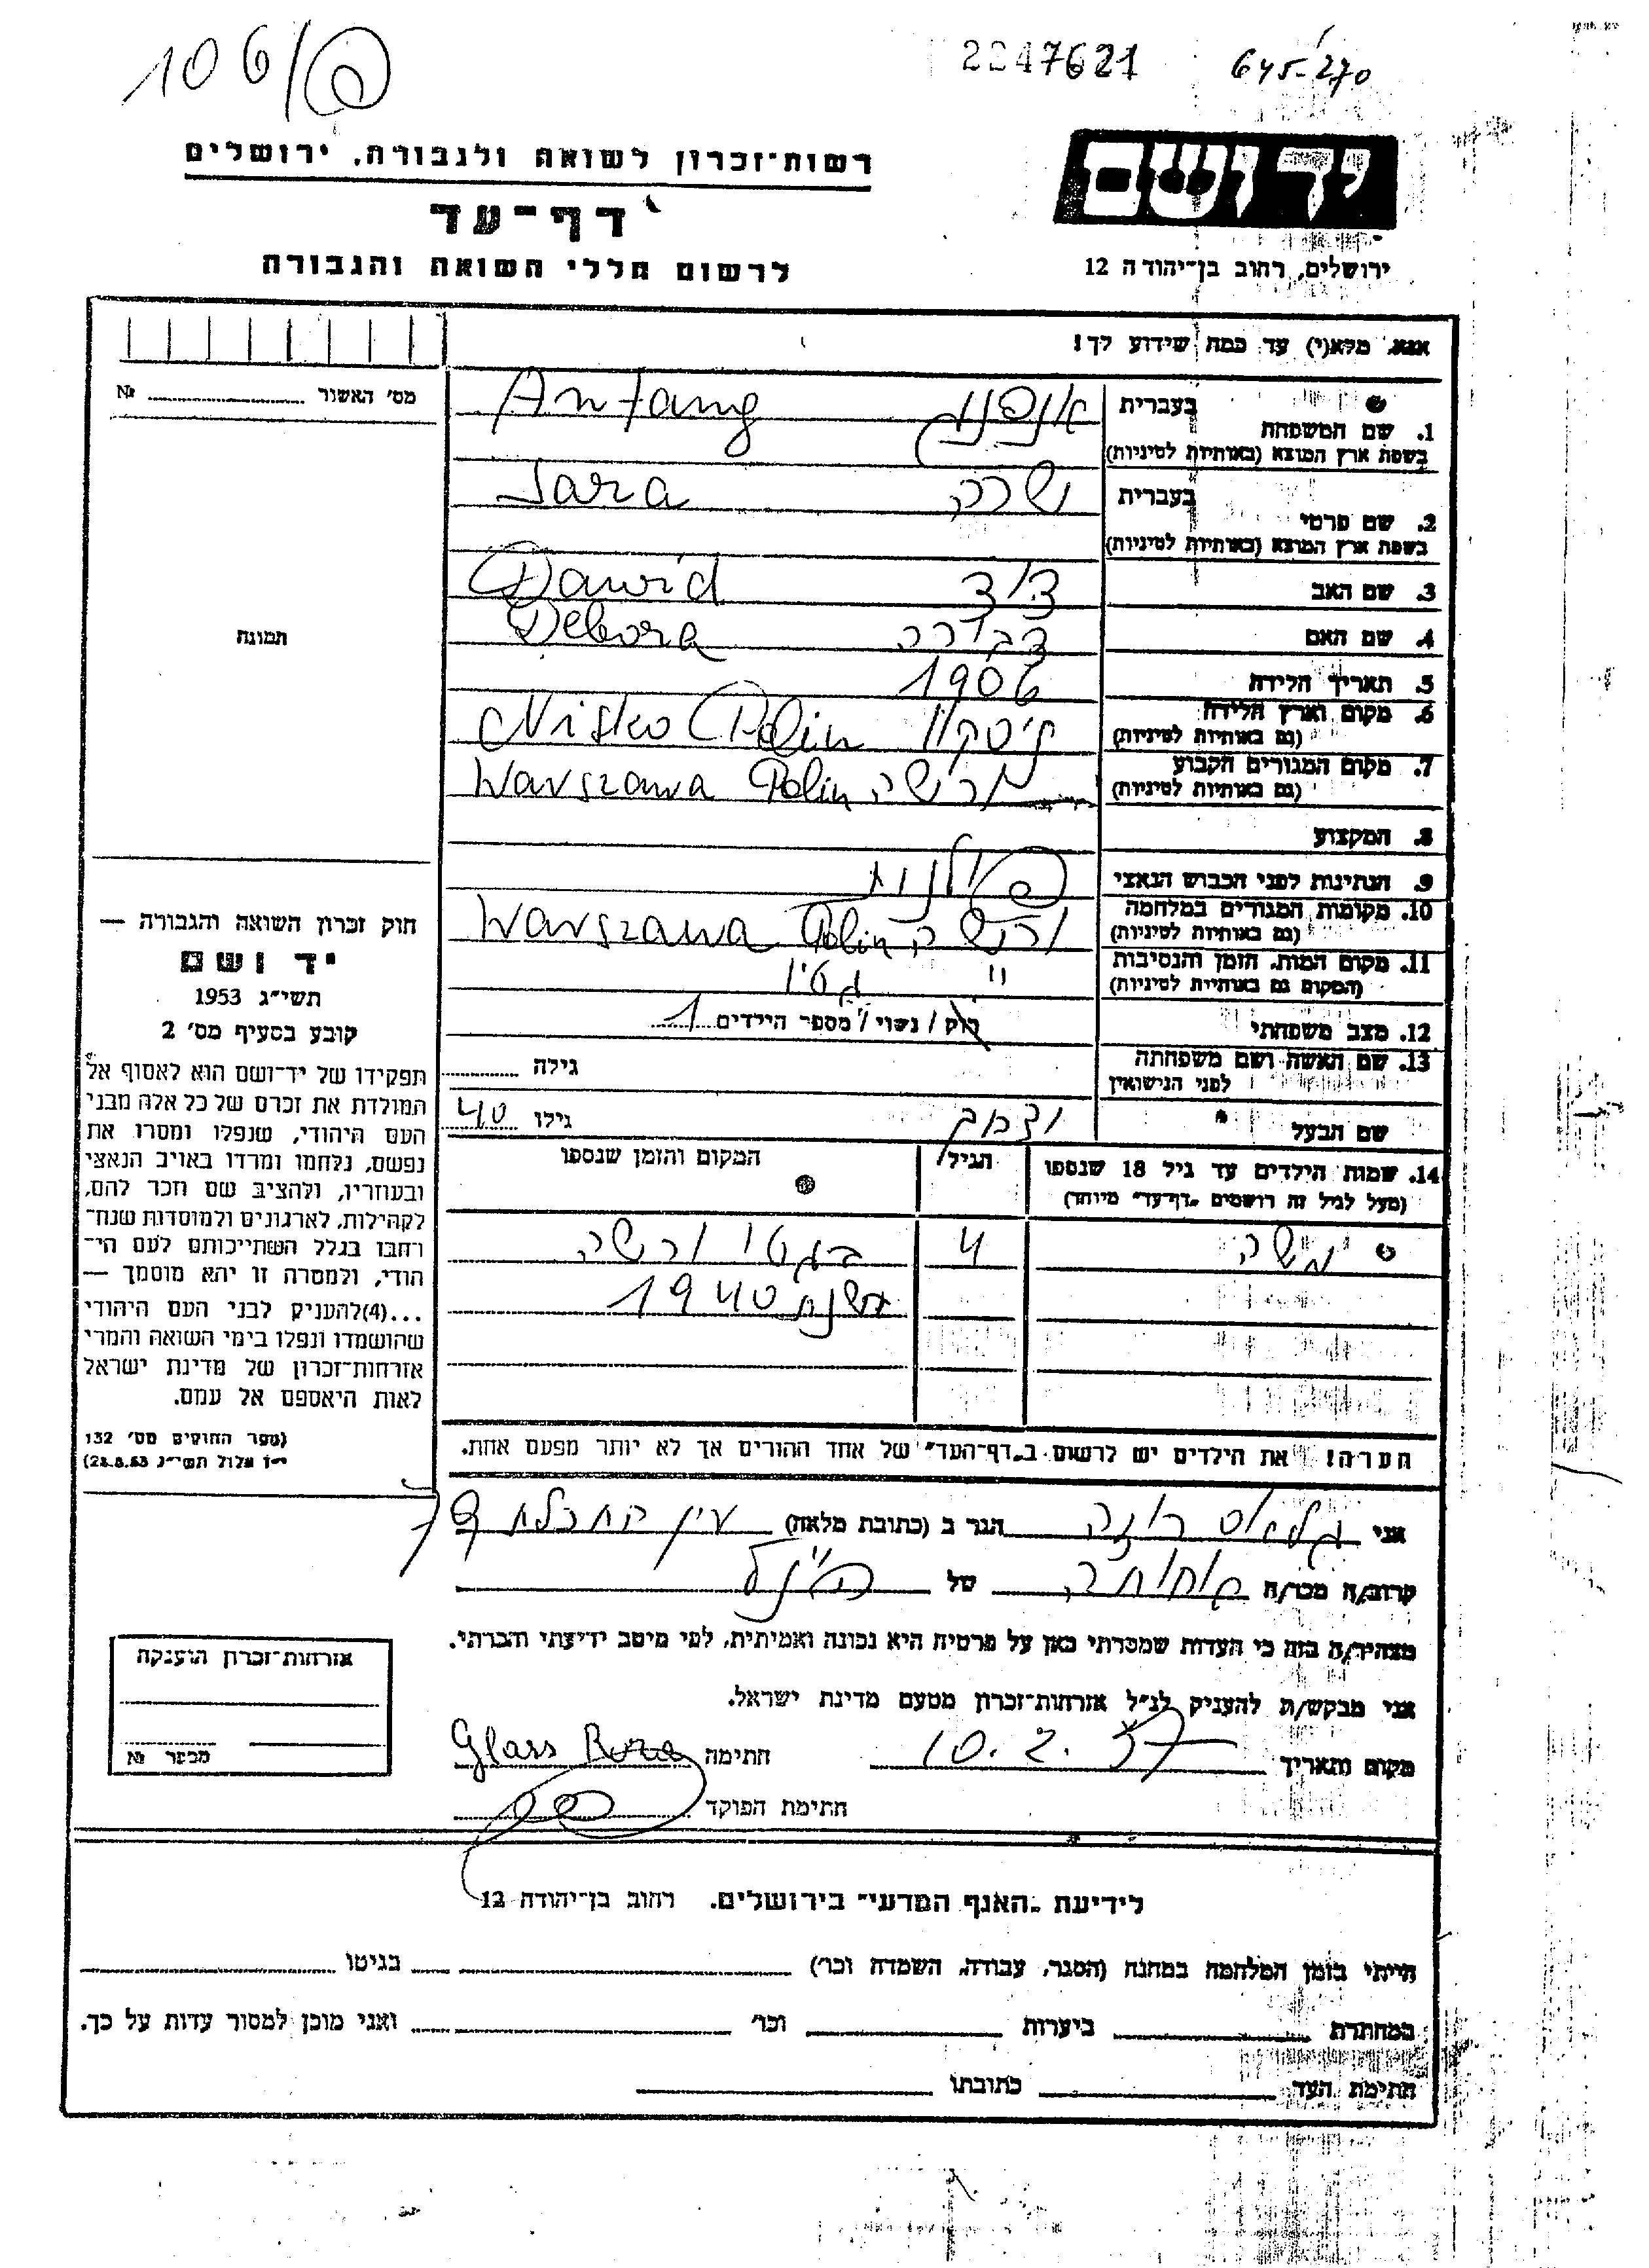 106/פ
2247621
645-270
ידושם
ירושלים, רחוב בן־יהודה 12
רשות־זכרון לשואה ולגבורה, ירושלים
דף־עד
לרשום חללי השואה והגבורה
אנא, מלא(י) עד כמה שידוע לך!
מס׳ האשור ........ №
תמונה
1. שם המשפחה בעברית אנפנג Anfang
בשפת ארץ המוצא (באותיות לטיניות)
2. שם פרטי בעברית שרה Sara
בשפת ארץ המוצא (באותיות לטיניות)
3. שם האב דוד Dawid
4. שם האם דבורה Debora
5. תאריך הלידה 1906
6. מקום וארץ הלידה ניסקו Nisko Polin
(גם באותיות לטיניות)
7. מקום המגורים הקבוע ורשה Warszawa Polin
(גם באותיות לטיניות)
8. המקצוע
9. הנתינות לפני הכבוש הנאצי פולנית
10. מקומות המגורים במלחמה ורשה Warszawa Polin
(גם באותיות לטיניות)
11. מקום המות, הזמן והנסיבות " גטו
(המקום גם באותיות לטיניות)
12. מצב משפחתי רוק / נשוי / מספר הילדים 1
13. שם האשה ושם משפחתה גילה
לפני הנישואין
שם הבעל גילו 40
14. שמות הילדים עד גיל 18 שנספו הגיל המקום והזמן שנספו
(מעל לגיל זה רושמים „דף־עד״ מיוחד)
משה 4 בגטו ורשה
בשנת 1940
הערה! את הילדים יש לרשום ב„דף־העד״ של אחד ההורים אך לא יותר מפעם אחת.
חוק זכרון השואה והגבורה —
יד ושם
תשי״ג 1953
קובע בסעיף מס׳ 2
תפקידו של יד־ושם הוא לאסוף אל
המולדת את זכרם של כל אלה מבני
העם היהודי, שנפלו ומסרו את
נפשם, נלחמו ומרדו באויב הנאצי
ובעוזריו, ולהציב שם וזכר להם,
לקהילות, לארגונים ולמוסדות שנח־
רחבו בגלל השתייכותם לעם הי־
הודי, ולמטרה זו יהא מוסמך —
...(4)להעניק לבני העם היהודי
שהושמדו ונפלו בימי השואה והמרי
אזרחות־זכרון של מדינת ישראל
לאות היאספם אל עמם.
(ספר החוקים מס׳ 132
י״ז אלול תשי״ג 28.8.53)
אני גלאס רוזה הגר ב (כתובת מלאה) עין התכלת
קרוב/ה מכר/ה אחותה של הנ״ל
מצהיר/ה בזה כי העדות שמסרתי כאן על פרטיה היא נכונה ואמיתית, לפי מיטב ידיעתי והכרתי.
אני מבקש/ת להעניק לנ״ל אזרחות־זכרון מטעם מדינת ישראל.
מקום ותאריך 10.2.57 חתימה Glass Roza
חתימת הפוקד
אזרחות־זכרון הוענקה
מספר №
לידיעת „האגף המדעי״ בירושלים. רחוב בן־יהודה 12
הייתי בזמן המלחמה במחנה (הסגר, עבודה, השמדה וכו׳) בגיטו
במחתרת ביערות וכו׳ ואני מוכן למסור עדות על כך.
חתימת העד כתובתו